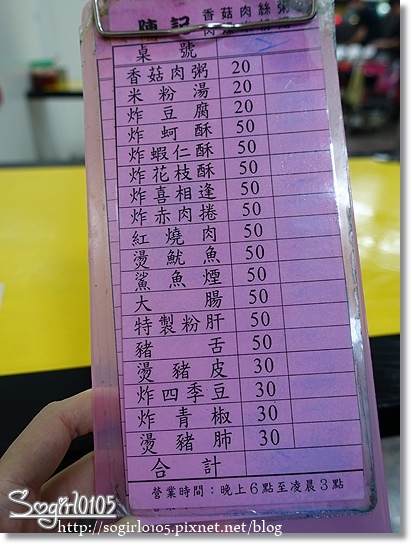 陳記 香菇肉絲粥
桌號
香菇肉粥 20
米粉湯 20
炸豆腐 20
炸蚵酥 50
炸蝦仁酥 50
炸花枝酥 50
炸喜相逢 50
炸赤肉捲 50
紅燒肉 50
燙魷魚 50
鯊魚煙 50
大腸 50
特製粉肝 50
豬舌 50
燙豬皮 30
炸四季豆 30
炸青椒 30
燙豬肺 30
合計
營業時間：晚上6點至凌晨3點
Sogirl0105
http://sogirl0105.pixnet.net/blog